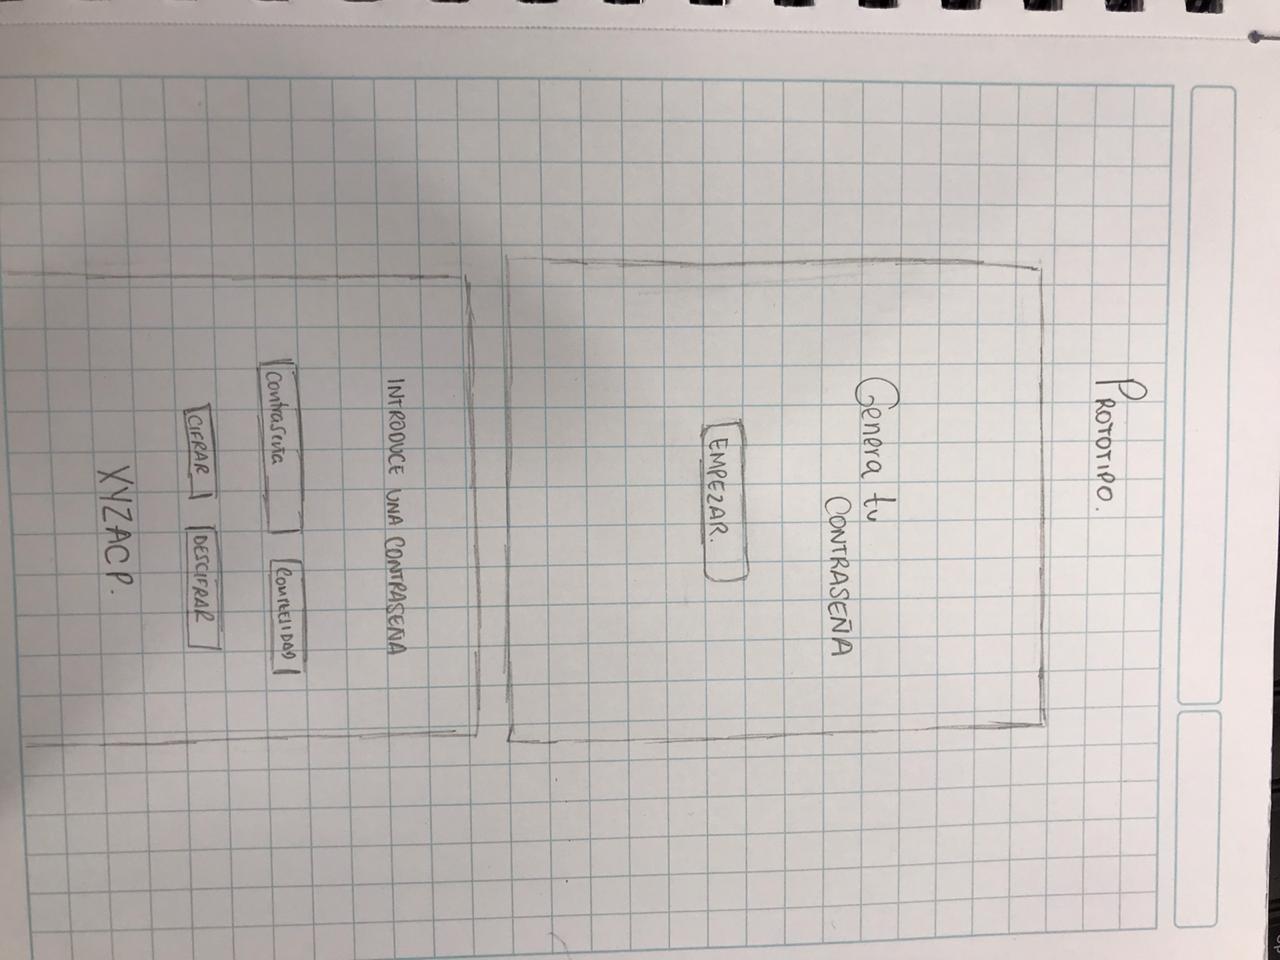 PROTOTIPO.
Genera tu
CONTRASEÑA
EMPEZAR.
INTRODUCE UNA CONTRASEÑA
Contraseña COMPLEJIDAD
CIFRAR DESCIFRAR
XYZACP.